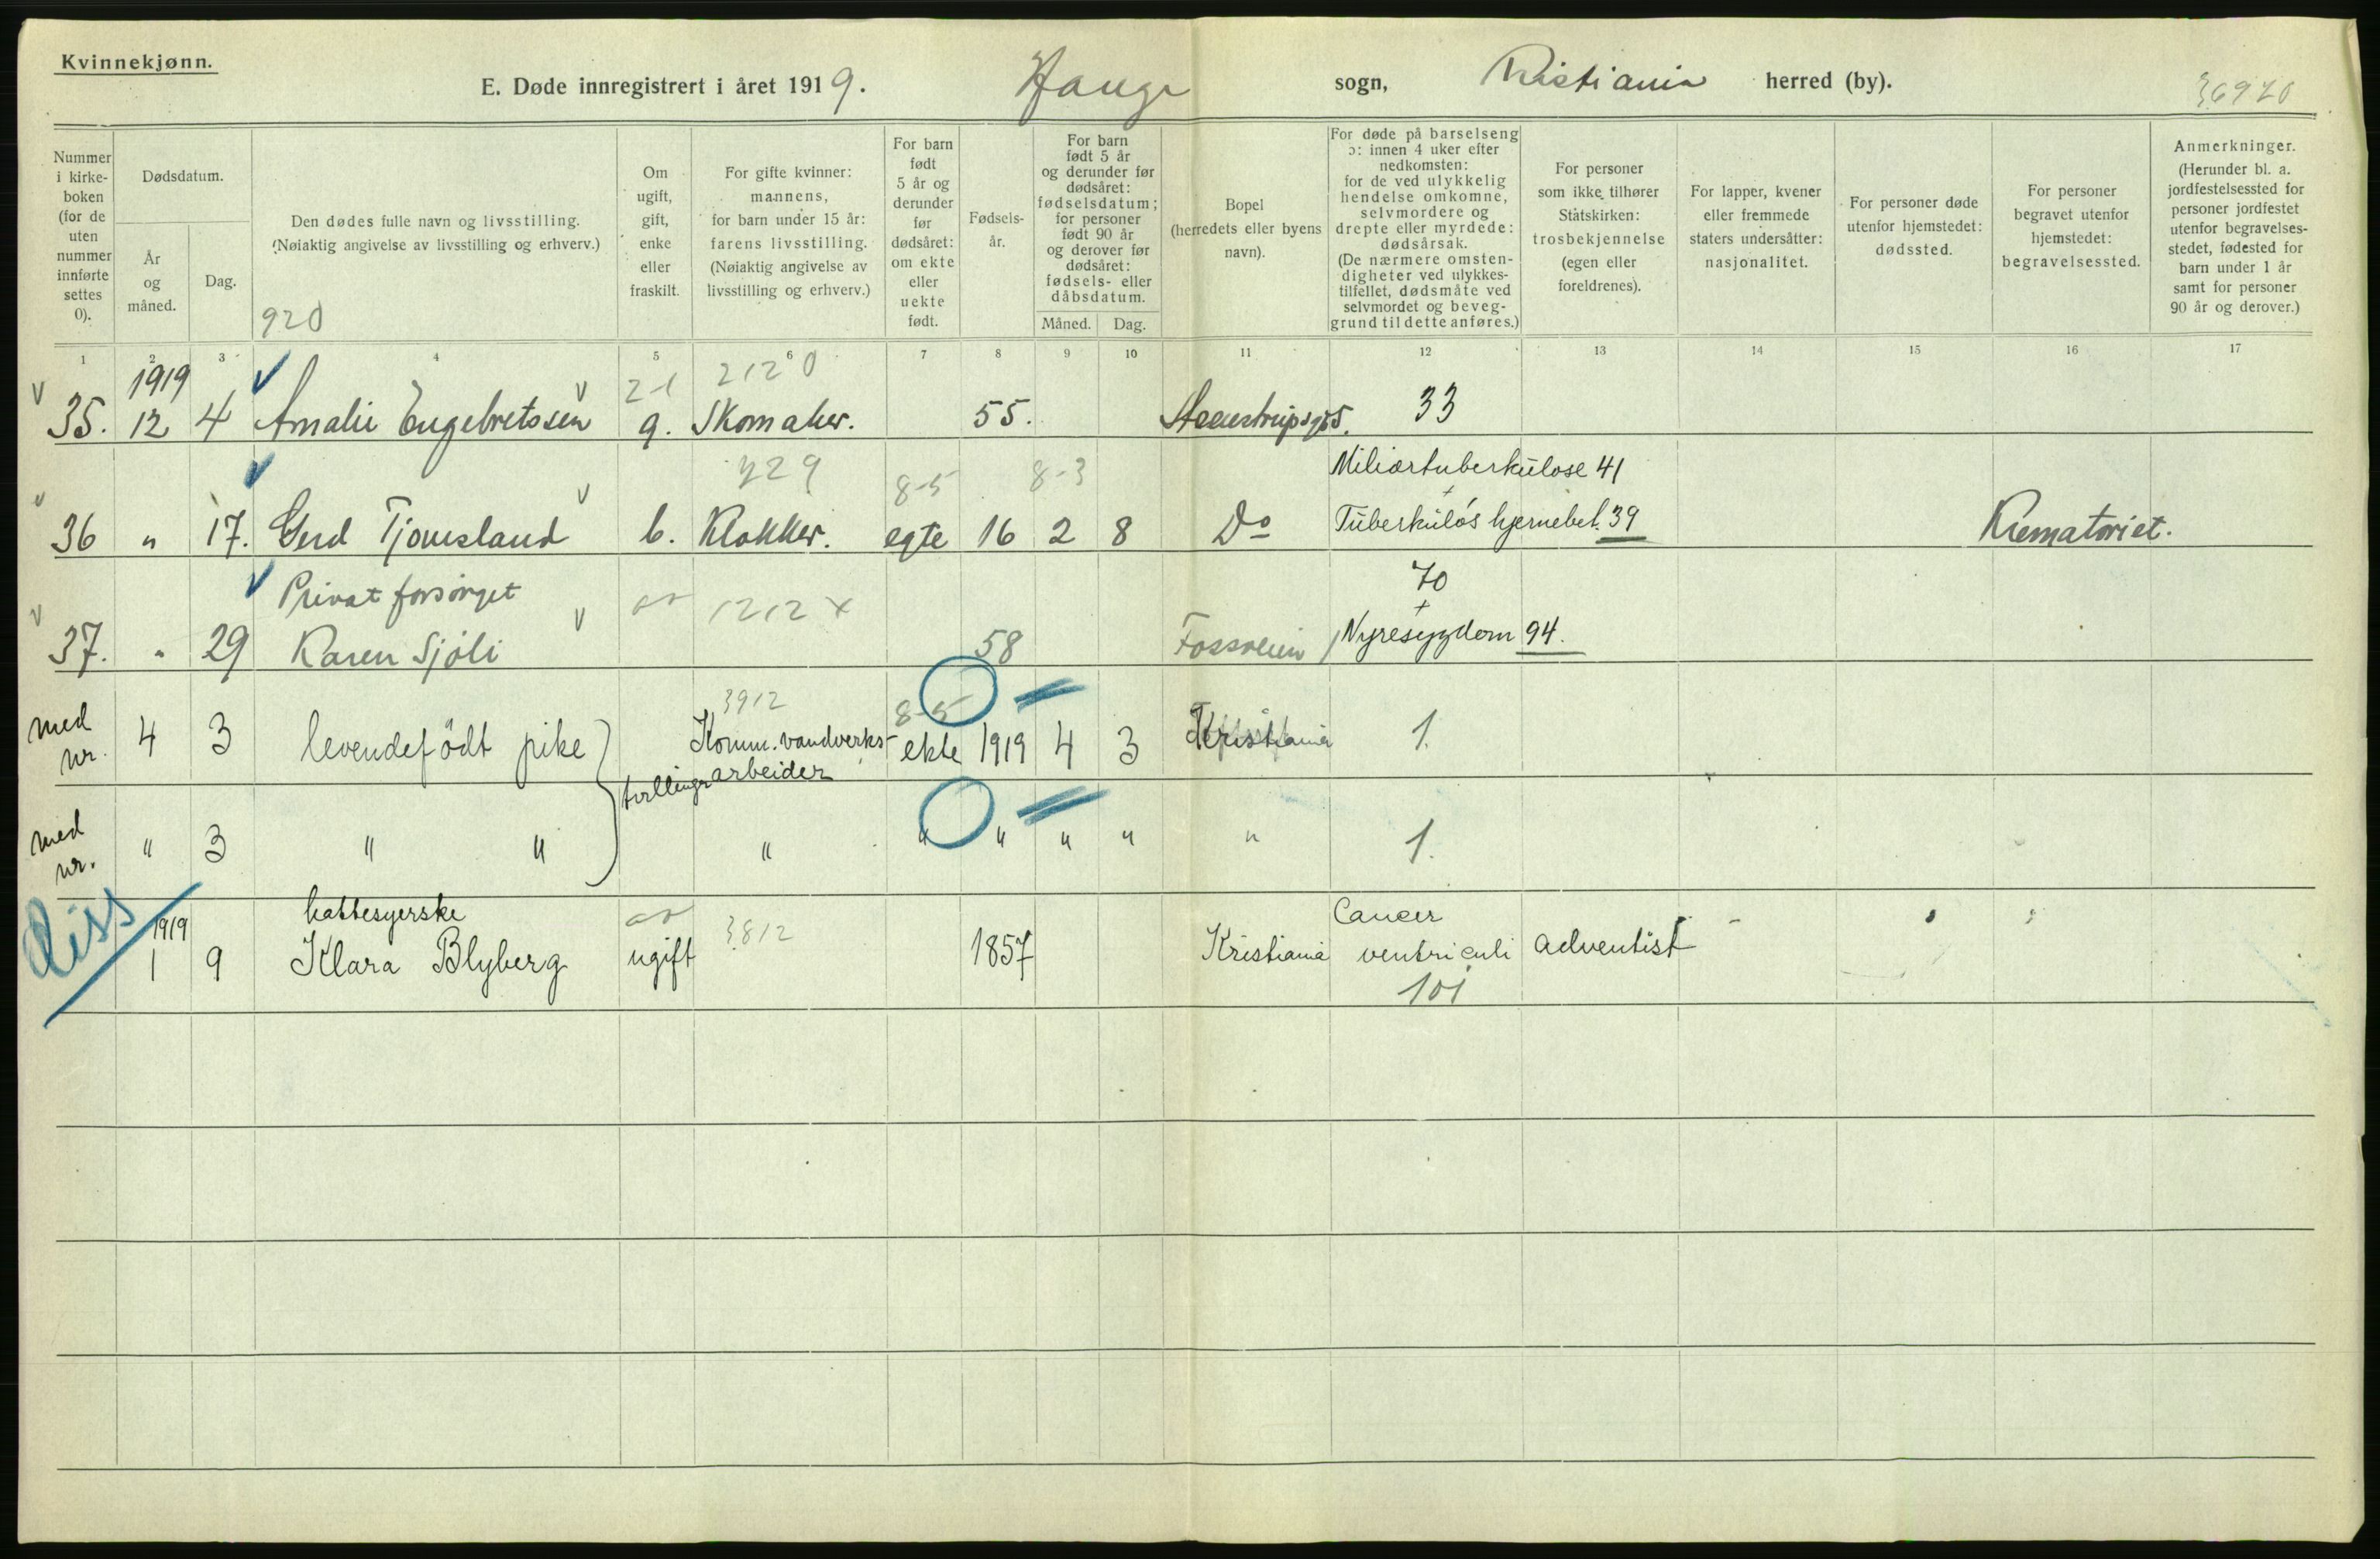 Kvinnekjønn.
E. Døde innregistrert i året 1919. Hauge sogn, Kristiania herred (by). 36920
Nummer i kirke-boken (for de uten nummer innførte settes 0).
Dødsdatum.
År og måned.
Dag.
Den dødes fulle navn og livsstilling.
(Nøiaktig angivelse av livsstilling og erhverv.)
920
Om ugift, gift, enke eller fraskilt.
For gifte kvinner: mannens, for barn under 15 år: farens livsstilling. (Nøiaktig angivelse av livsstilling og erhverv.)
For barn født 5 år og derunder før dødsåret: om ekte eller uekte født.
Fødsels-år.
For barn født 5 år og derunder før dødsåret: fødselsdatum; for personer født 90 år og derover før dødsåret: fødsels- eller dåbsdatum.
Måned. Dag.
Bopel (herredets eller byens navn).
For døde på barselseng ɔ: innen 4 uker efter nedkomsten: for de ved ulykkelig hendelse omkomne, selvmordere og drepte eller myrdede: dødsårsak. (De nærmere omsten-digheter ved ulykkes-tilfellet, dødsmåte ved selvmordet og beveg-grund til dette anføres.)
For personer som ikke tilhører Statskirken: trosbekjennelse (egen eller foreldrenes).
For lapper, kvener eller fremmede staters undersåtter: nasjonalitet.
For personer døde utenfor hjemstedet: dødssted.
For personer begravet utenfor hjemstedet: begravelsessted.
Anmerkninger. (Herunder bl. a. jordfestelsessted for personer jordfestet utenfor begravelses-stedet, fødested for barn under 1 år samt for personer 90 år og derover.)
1 2 3 4 5 6 7 8 9 10 11 12 13 14 15 16 17
1919 2-1 2120
35. 12 4 Amalie Engebretssen g. Skomaker. 55. 33
729 8-5 8-3 Miliærtuberkulose 41
36 " 17. Gerd Tjomsland b. Klokker. egte 16 2 8 Do Tuberkuløs hjernebet. 39 Krematoriet.
Privat forsörget 1212 x 70
37. " 29 Karen Sjöli 58 Fossveien Nyresygdom 94.
3912 8-5
med nr. 4 3 levendefödt pike Komm. vandverks- ekte 1919 4 3 Kristiania 1.
tvillinger arbeider
med nr. " 3 " " " " " " " " 1.
diss
1919 hattesyerske 3812 Cancer
1 9 Klara Blyberg ugift 1857 Kristiania ventriculi adventist
101